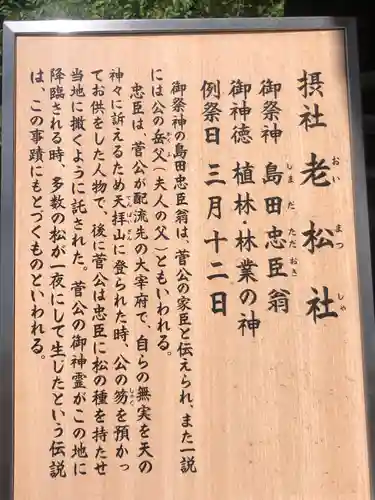 摂社 老松社
おい まつ しゃ
御祭神 島田忠臣翁
しま だ ただ おき
御神徳 植林・林業の神
例祭日 三月十二日
御祭神の島田忠臣翁は、菅公の家臣と伝えられ、また一説
には公の岳父(夫人の父)ともいわれる。
忠臣は、菅公が配流先の大宰府で、自らの無実を天の
神々に訴えるため天拝山に登られた時、公の笏を預かっ
てんぱいざん しゃく
てお供をした人物で、後に菅公は忠臣に松の種を持たせ
当地に撒くように託された。菅公の御神霊がこの地に
降臨される時、多数の松が一夜にして生じたという伝説
は、この事蹟にもとづくものといわれる。